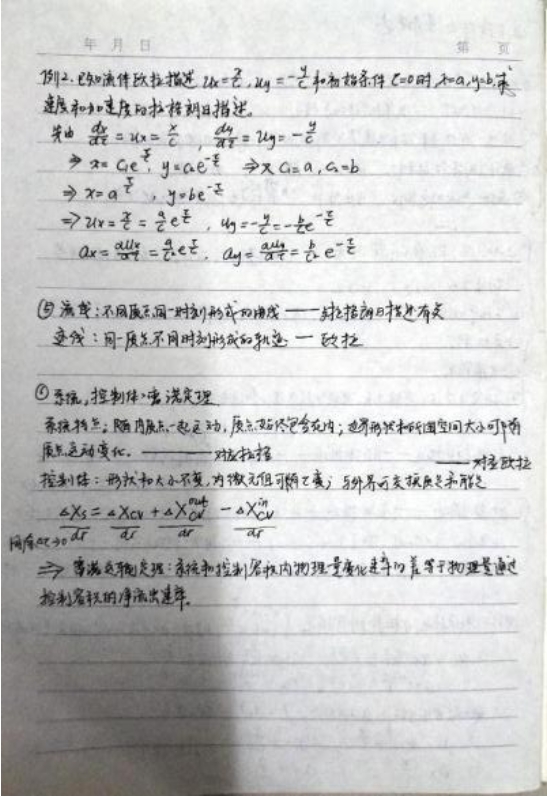 年 月 日 第 页
例2.已知流体欧拉描述 ux=x/c, uy=-y/c 和初始条件 τ=0时,x=a,y=b,求
速度和加速度的拉格朗日描述。
先由 dx/dτ=ux=x/c, dy/dτ=uy=-y/c
⇒ x=c₁e^(τ/c), y=c₂e^(-τ/c) ⇒又 c₁=a, c₂=b
⇒ x=a^(τ/c), y=be^(-τ/c)
⇒ ux=x/c=a/c e^(τ/c), uy=-y/c=-b/c e^(-τ/c)
ax=dux/dτ=a/c² e^(τ/c), ay=duy/dτ=b/c² e^(-τ/c)
⑤ 流线:不同质点同一时刻形成的曲线 —— 拉格朗日描述有关
迹线:同一质点不同时刻形成的轨迹 — 欧拉
⑥ 系统,控制体,雷诺定理
系统特点:随内质点一起运动,质点始终包含在内;边界形状和所围空间大小可随
质点运动变化。—— 对应拉格
—— 对应欧拉
控制体:形状和大小不变,内微元但可随τ变;与外界可交换质点和能量
ΔXs/dτ = ΔXcv/dτ + ΔXcv^out/dτ - ΔXcv^in/dτ
同除Δτ→0
⇒ 雷诺运输定理:系统和控制容积内物理量变化速率的差等于物理量通过
控制容积的净流出速率。